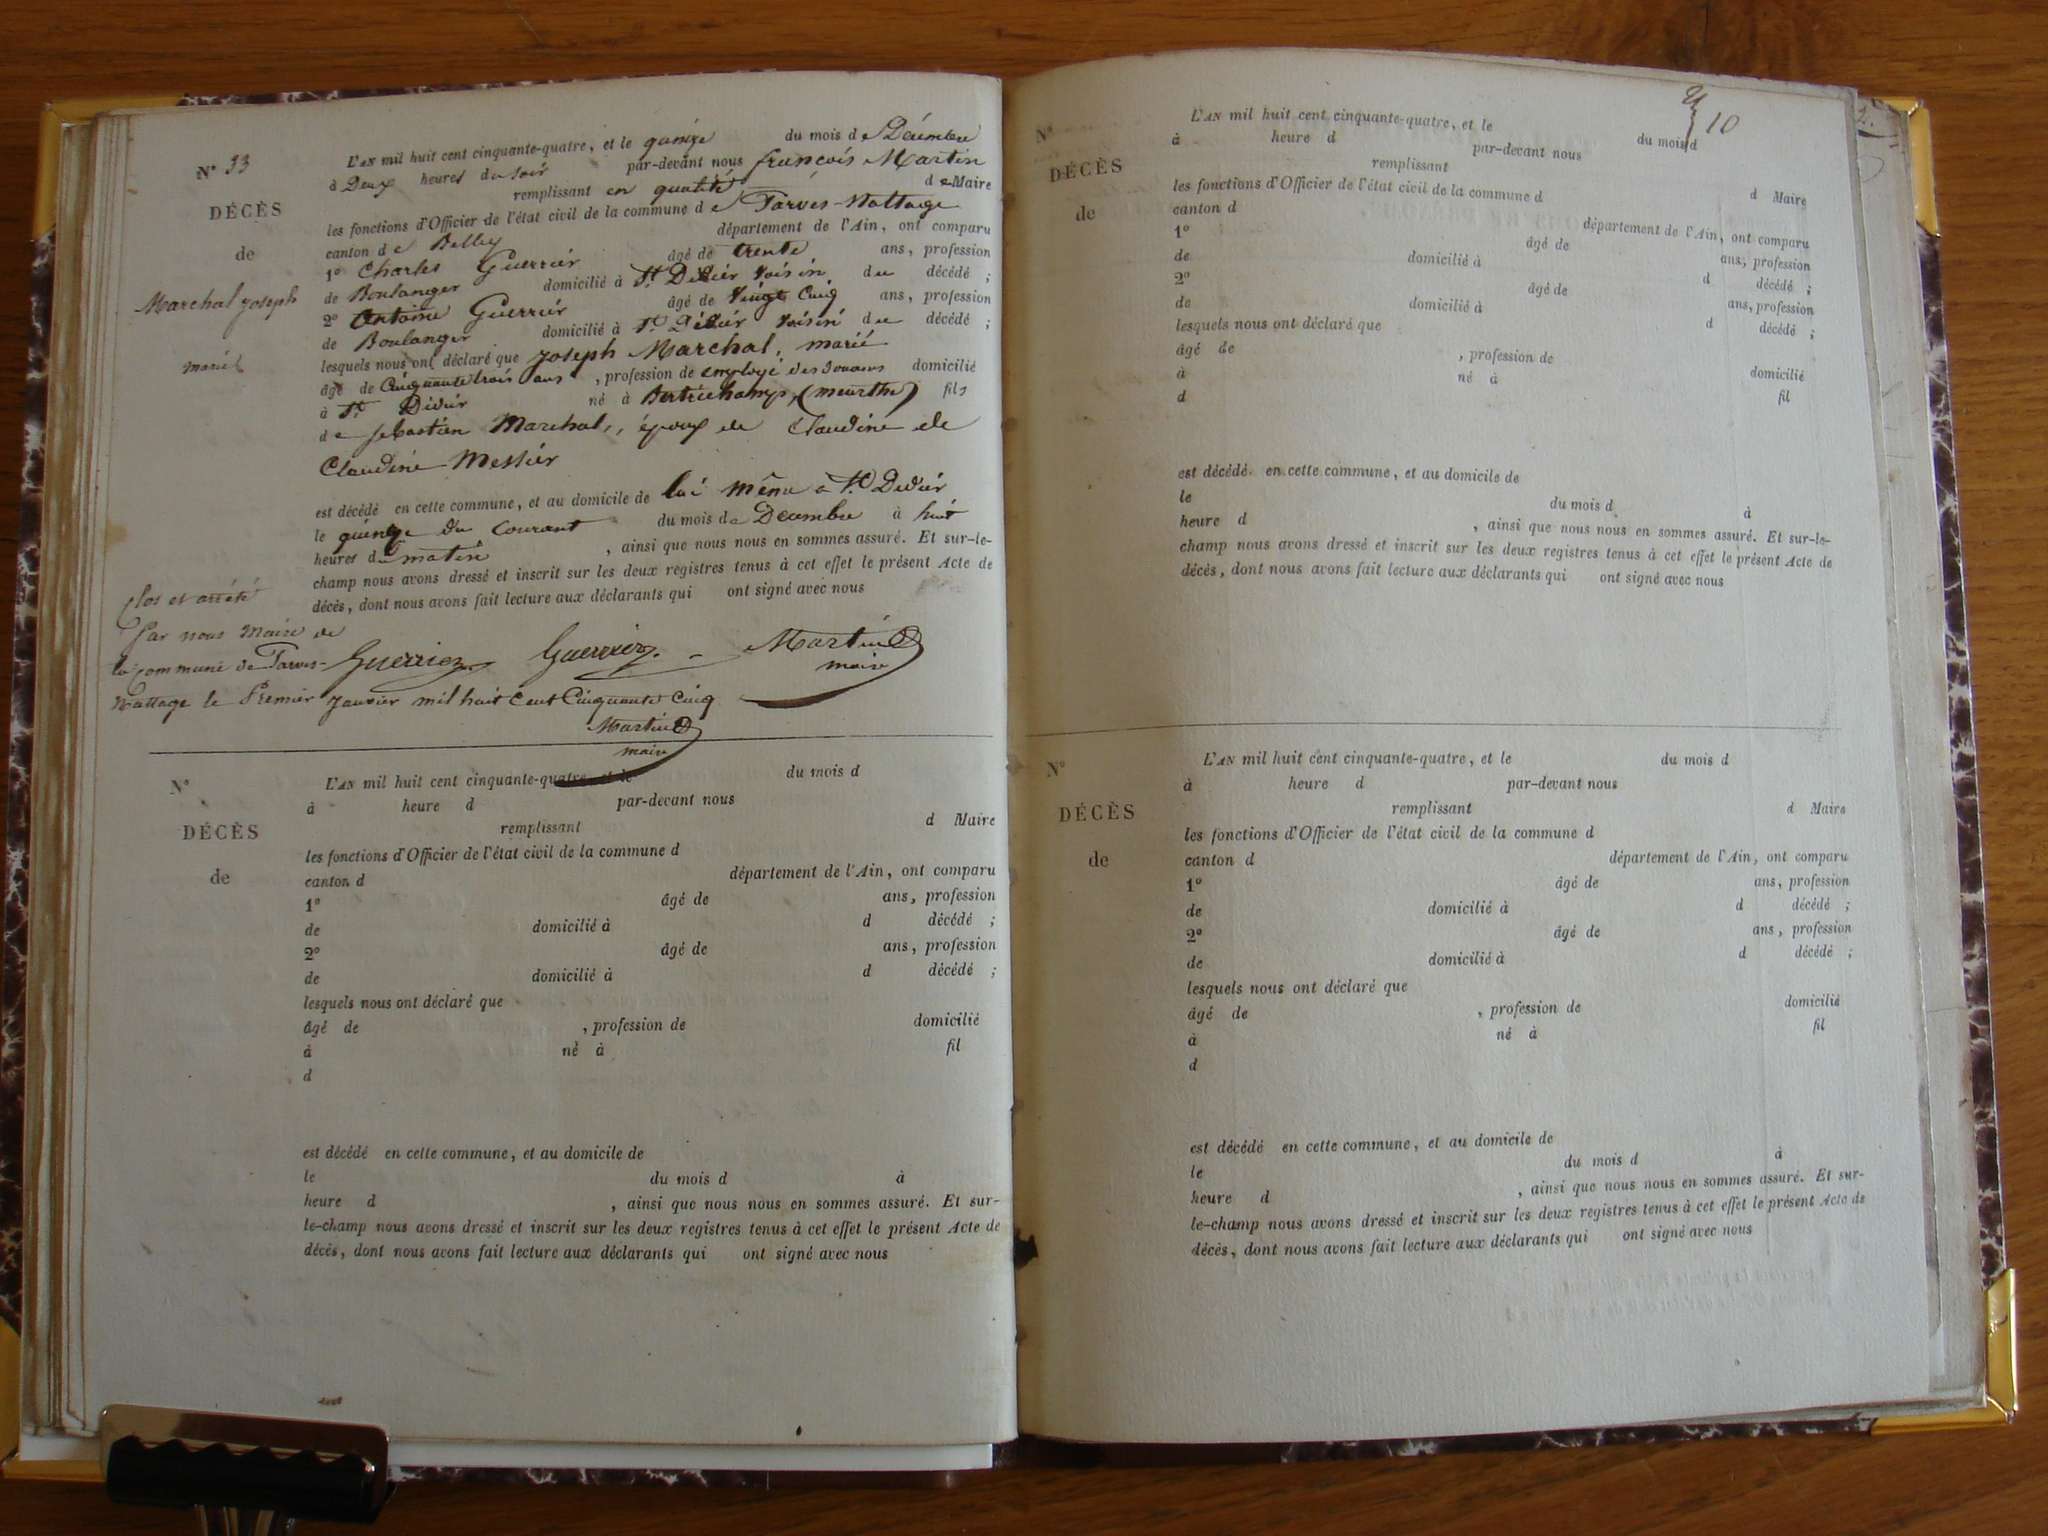 N° 33
DÉCÈS
de
Marchal Joseph
marié
L'AN mil huit cent cinquante-quatre, et le quinze du mois de Décembre
à Deux heures du soir par-devant nous françois Martin
remplissant en qualité de Maire
les fonctions d'Officier de l'état civil de la commune de Parves-Nattage
canton de Belley département de l'Ain, ont comparu
1° Charles Guerrier âgé de trente ans, profession
de Boulanger domicilié à St. Didier voisin du décédé ;
2° Antoine Guerrier âgé de vingt cinq ans, profession
de Boulanger domicilié à St. Didier voisin du décédé ;
lesquels nous ont déclaré que Joseph Marchal, marié
âgé de Cinquante trois ans, profession de employé des Douanes domicilié
à St. Didier né à Bertrichamps, (meurthe) fils
de Sebastien Marchal, époux de Claudine de
Claudine Messier
est décédé en cette commune, et au domicile de lui même à St. Didier
le quinze du courant du mois de Décembre à huit
heures d matin, ainsi que nous nous en sommes assuré. Et sur-le-
champ nous avons dressé et inscrit sur les deux registres tenus à cet effet le présent Acte de
décès, dont nous avons fait lecture aux déclarants qui ont signé avec nous
Guerrier Guerrier Martin
maire
Clos et arrété
par nous Maire de
la commune de Parves-
Nattage le Premier Janvier mil huit Cent Cinquante Cinq
Martin
maire
N°
DÉCÈS
de
L'AN mil huit cent cinquante-quatre, et le du mois d
à heure d par-devant nous
remplissant d Maire
les fonctions d'Officier de l'état civil de la commune d
canton d département de l'Ain, ont comparu
1° âgé de ans, profession
de domicilié à d décédé ;
2° âgé de ans, profession
de domicilié à d décédé ;
lesquels nous ont déclaré que
âgé de , profession de domicilié
à né à fil
d
est décédé en cette commune, et au domicile de
le du mois d à
heure d , ainsi que nous nous en sommes assuré. Et sur-
le-champ nous avons dressé et inscrit sur les deux registres tenus à cet effet le présent Acte de
décès, dont nous avons fait lecture aux déclarants qui ont signé avec nous
10
N°
DÉCÈS
de
L'AN mil huit cent cinquante-quatre, et le du mois d
à heure d par-devant nous
remplissant d Maire
les fonctions d'Officier de l'état civil de la commune d
canton d département de l'Ain, ont comparu
1° âgé de ans, profession
de domicilié à d décédé ;
2° âgé de ans, profession
de domicilié à d décédé ;
lesquels nous ont déclaré que
âgé de , profession de domicilié
à né à fil
d
est décédé en cette commune, et au domicile de
le du mois d à
heure d , ainsi que nous nous en sommes assuré. Et sur-le-
champ nous avons dressé et inscrit sur les deux registres tenus à cet effet le présent Acte de
décès, dont nous avons fait lecture aux déclarants qui ont signé avec nous
N°
DÉCÈS
de
L'AN mil huit cent cinquante-quatre, et le du mois d
à heure d par-devant nous
remplissant d Maire
les fonctions d'Officier de l'état civil de la commune d
canton d département de l'Ain, ont comparu
1° âgé de ans, profession
de domicilié à d décédé ;
2° âgé de ans, profession
de domicilié à d décédé ;
lesquels nous ont déclaré que
âgé de , profession de domicilié
à né à fil
d
est décédé en cette commune, et au domicile de
le du mois d à
heure d , ainsi que nous nous en sommes assuré. Et sur-
le-champ nous avons dressé et inscrit sur les deux registres tenus à cet effet le présent Acte de
décès, dont nous avons fait lecture aux déclarants qui ont signé avec nous